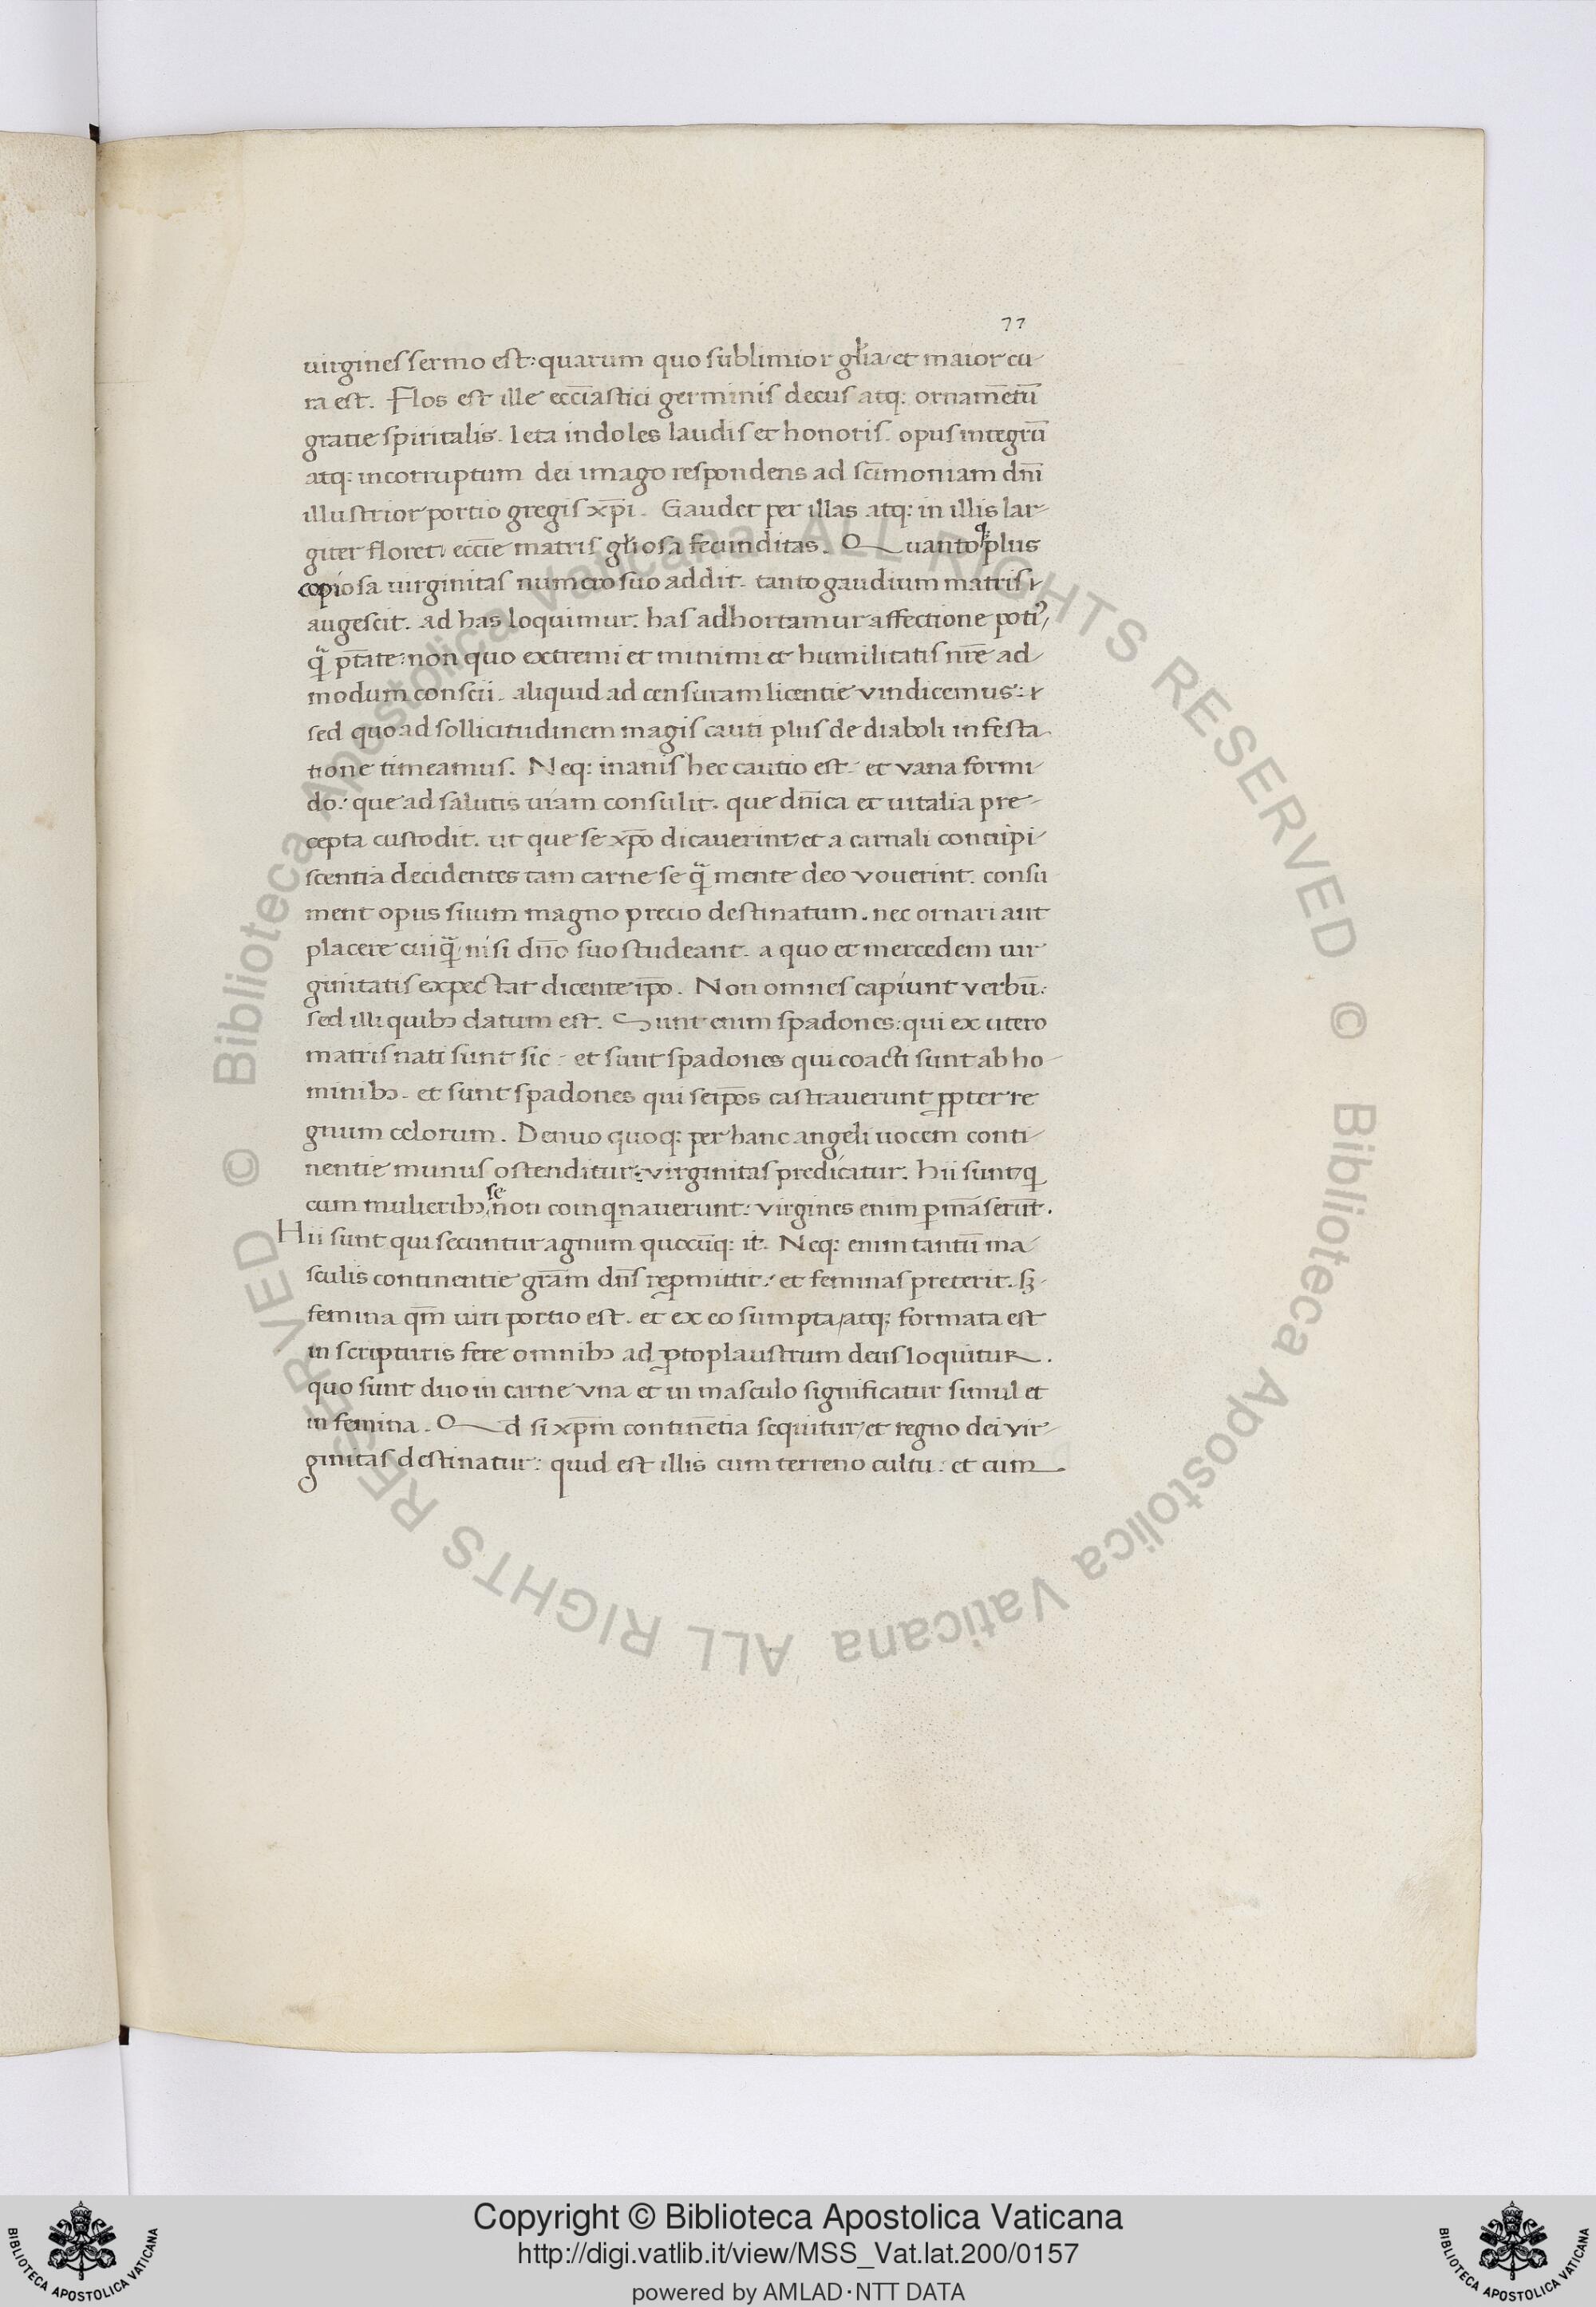 77
uirgines sermo est: quarum quo sublimior gl̄ia et maior cu-
ra est. Flos est ille eccl̄iastici germinis decus atq: ornam̄etū
gratie spiritalis. leta indoles laudis et honoris. opus integrū
atq: incorruptum dei imago respondens ad sc̄imoniam dn̄i
illustrior portio gregis xp̄i. Gaudet per illas atq: in illis lar-
giter floret eccl̄ie matris gl̄iosa fecunditas. Quanto q; plus
copiosa uirginitas numero suo addit. tanto gaudium matris
augescit. ad has loquimur. has adhortamur affectione poti9
q̄ p̄tate: non quo extremi et minimi et humilitatis nr̄e ad-
modum conscii. aliquid ad censuram licentie vindicemus:
sed quo ad sollicitudinem magis cauti plus de diaboli infesta
tione timeamus. Neq: inanis hec cautio est. et vana formi-
do: que ad salutis uiam consulit. que dn̄ica et uitalia pre-
cepta custodit. ut que se xp̄o dicauerint et a carnali concupi-
scentia decidentes tam carne se q̄ mente deo vouerint. consu
ment opus suum magno precio destinatum. nec ornari aut
placere cuiq̄ nisi dn̄o suo studeant. a quo et mercedem uir
ginitatis expectat dicente ip̄o. Non omnes capiunt verbū:
sed illi quibꝫ datum est. Sunt enim spadones: qui ex utero
matris nati sunt sic. et sunt spadones qui coacti sunt ab ho-
minibꝫ. et sunt spadones qui seip̄os castrauerunt ꝓpter re
gnum celorum. Denuo quoq: per hanc angeli uocem conti-
nentie munus ostenditur: virginitas predicatur. Hii sunt q
cum mulieribꝫ se non coinqnauerunt: virgines enim ꝑmāserūt.
Hii sunt qui secuntur agnum quocūq: it̄. Neq: enim tantū ma-
sculis continentie gr̄am dn̄s reꝑmittit: et feminas preterit. sꝫ
femina qm̄ uiri portio est. et ex eo sumpta atq: formata est
in scripturis fere omnibꝫ ad ꝓtoplaustrum deus loquitur.
quo sunt duo in carne vna et in masculo significatur simul et
in femina. Qd si xp̄m contin̄etia sequitur et regno dei vir-
ginitas destinatur: quid est illis cum terreno cultu: et cum
© Biblioteca Apostolica Vaticana ALL RIGHTS RESERVED
© Biblioteca Apostolica Vaticana ALL RIGHTS RESERVED
Copyright © Biblioteca Apostolica Vaticana
http://digi.vatlib.it/view/MSS_Vat.lat.200/0157
powered by AMLAD·NTT DATA
BIBLIOTECA APOSTOLICA VATICANA
BIBLIOTECA APOSTOLICA VATICANA